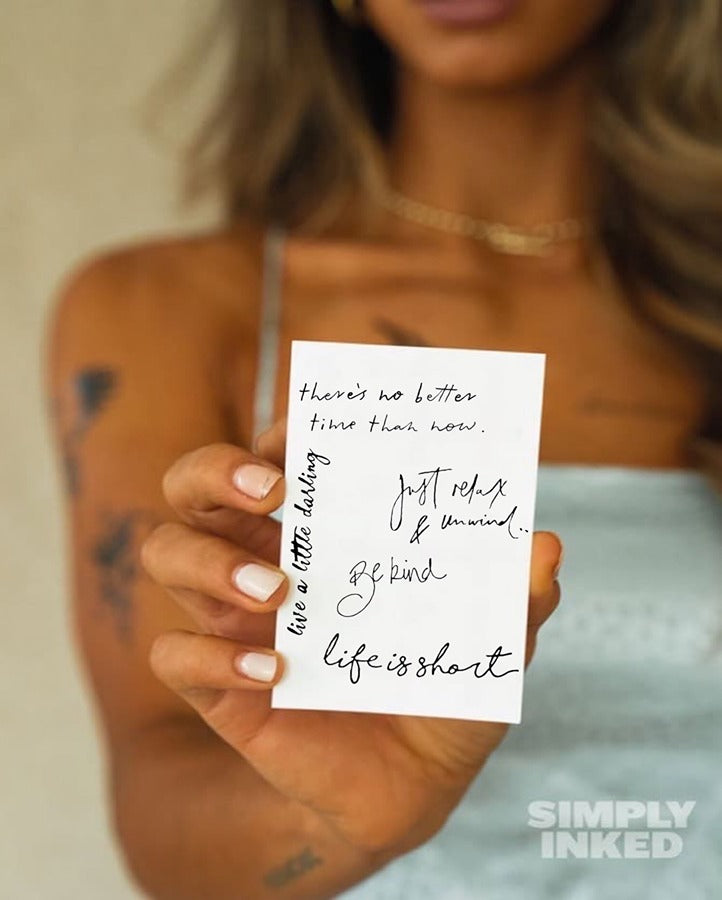 there's no better
time than now.
live a little darling
just relax
& unwind..
Be kind
life is short
SIMPLY
INKED